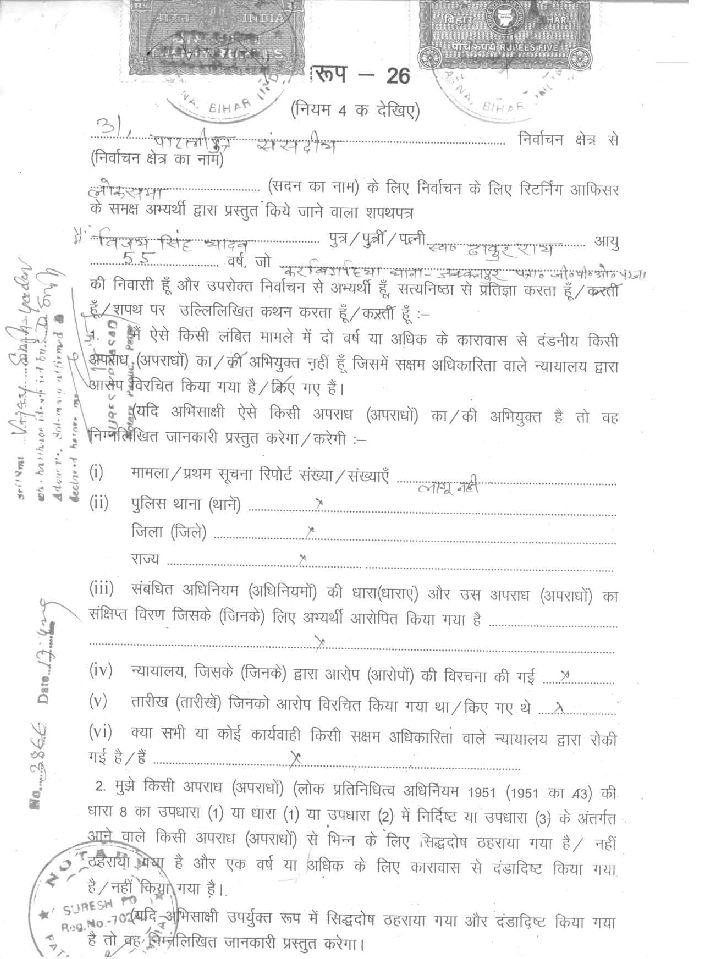 INDIA
BIHAR
RUPEES FIVE
BIHAR
BIHAR
रूप – 26
(नियम 4 क देखिए)
31, संसदीय निर्वाचन क्षेत्र से
(निर्वाचन क्षेत्र का नाम)
लोकसभा (सदन का नाम) के लिए निर्वाचन के लिए रिटर्निंग आफिसर
के समक्ष अभ्यर्थी द्वारा प्रस्तुत किये जाने वाला शपथपत्र
मैं विजय सिंह यादव पुत्र/पुत्री/पत्नी स्व० ठाकुर राय आयु
55 वर्ष, जो
की निवासी हूँ और उपरोक्त निर्वाचन से अभ्यर्थी हूँ, सत्यनिष्ठा से प्रतिज्ञा करता हूँ/करती
हूँ/शपथ पर उल्लिलिखित कथन करता हूँ/करती हूँ :–
मैं ऐसे किसी लंबित मामले में दो वर्ष या अधिक के कारावास से दंडनीय किसी
अपराध (अपराधों) का/की अभियुक्त नहीं हूँ जिसमें सक्षम अधिकारिता वाले न्यायालय द्वारा
आरोप विरचित किया गया है/किए गए हैं।
(यदि अभिसाक्षी ऐसे किसी अपराध (अपराधों) का/की अभियुक्त है तो वह
निम्नलिखित जानकारी प्रस्तुत करेगा/करेगी :–
(i) मामला/प्रथम सूचना रिपोर्ट संख्या/संख्याएँ लागू नहीं
(ii) पुलिस थाना (थाने) x
जिला (जिले) x
राज्य x
(iii) संबंधित अधिनियम (अधिनियमों) की धारा(धाराएं) और उस अपराध (अपराधों) का
संक्षिप्त विरण जिसके (जिनके) लिए अभ्यर्थी आरोपित किया गया है
x
(iv) न्यायालय, जिसके (जिनके) द्वारा आरोप (आरोपों) की विरचना की गई x
(v) तारीख (तारीखें) जिनको आरोप विरचित किया गया था/किए गए थे x
(vi) क्या सभी या कोई कार्यवाही किसी सक्षम अधिकारिता वाले न्यायालय द्वारा रोकी
गई है/हैं x
2. मुझे किसी अपराध (अपराधों) (लोक प्रतिनिधित्व अधिनियम 1951 (1951 का 43) की
धारा 8 का उपधारा (1) या धारा (1) या उपधारा (2) में निर्दिष्ट या उपधारा (3) के अंतर्गत
आने वाले किसी अपराध (अपराधों) से भिन्न के लिए सिद्धदोष ठहराया गया है/ नहीं
ठहराया गया है और एक वर्ष या अधिक के लिए कारावास से दंडादिष्ट किया गया
है/नहीं किया गया है।
(यदि अभिसाक्षी उपर्युक्त रूप में सिद्धदोष ठहराया गया और दंडादिष्ट किया गया
है तो वह निम्नलिखित जानकारी प्रस्तुत करेगा।
NOTARY
SURESH
Reg.No.-702
Vijay Singh Yadav
No. Date